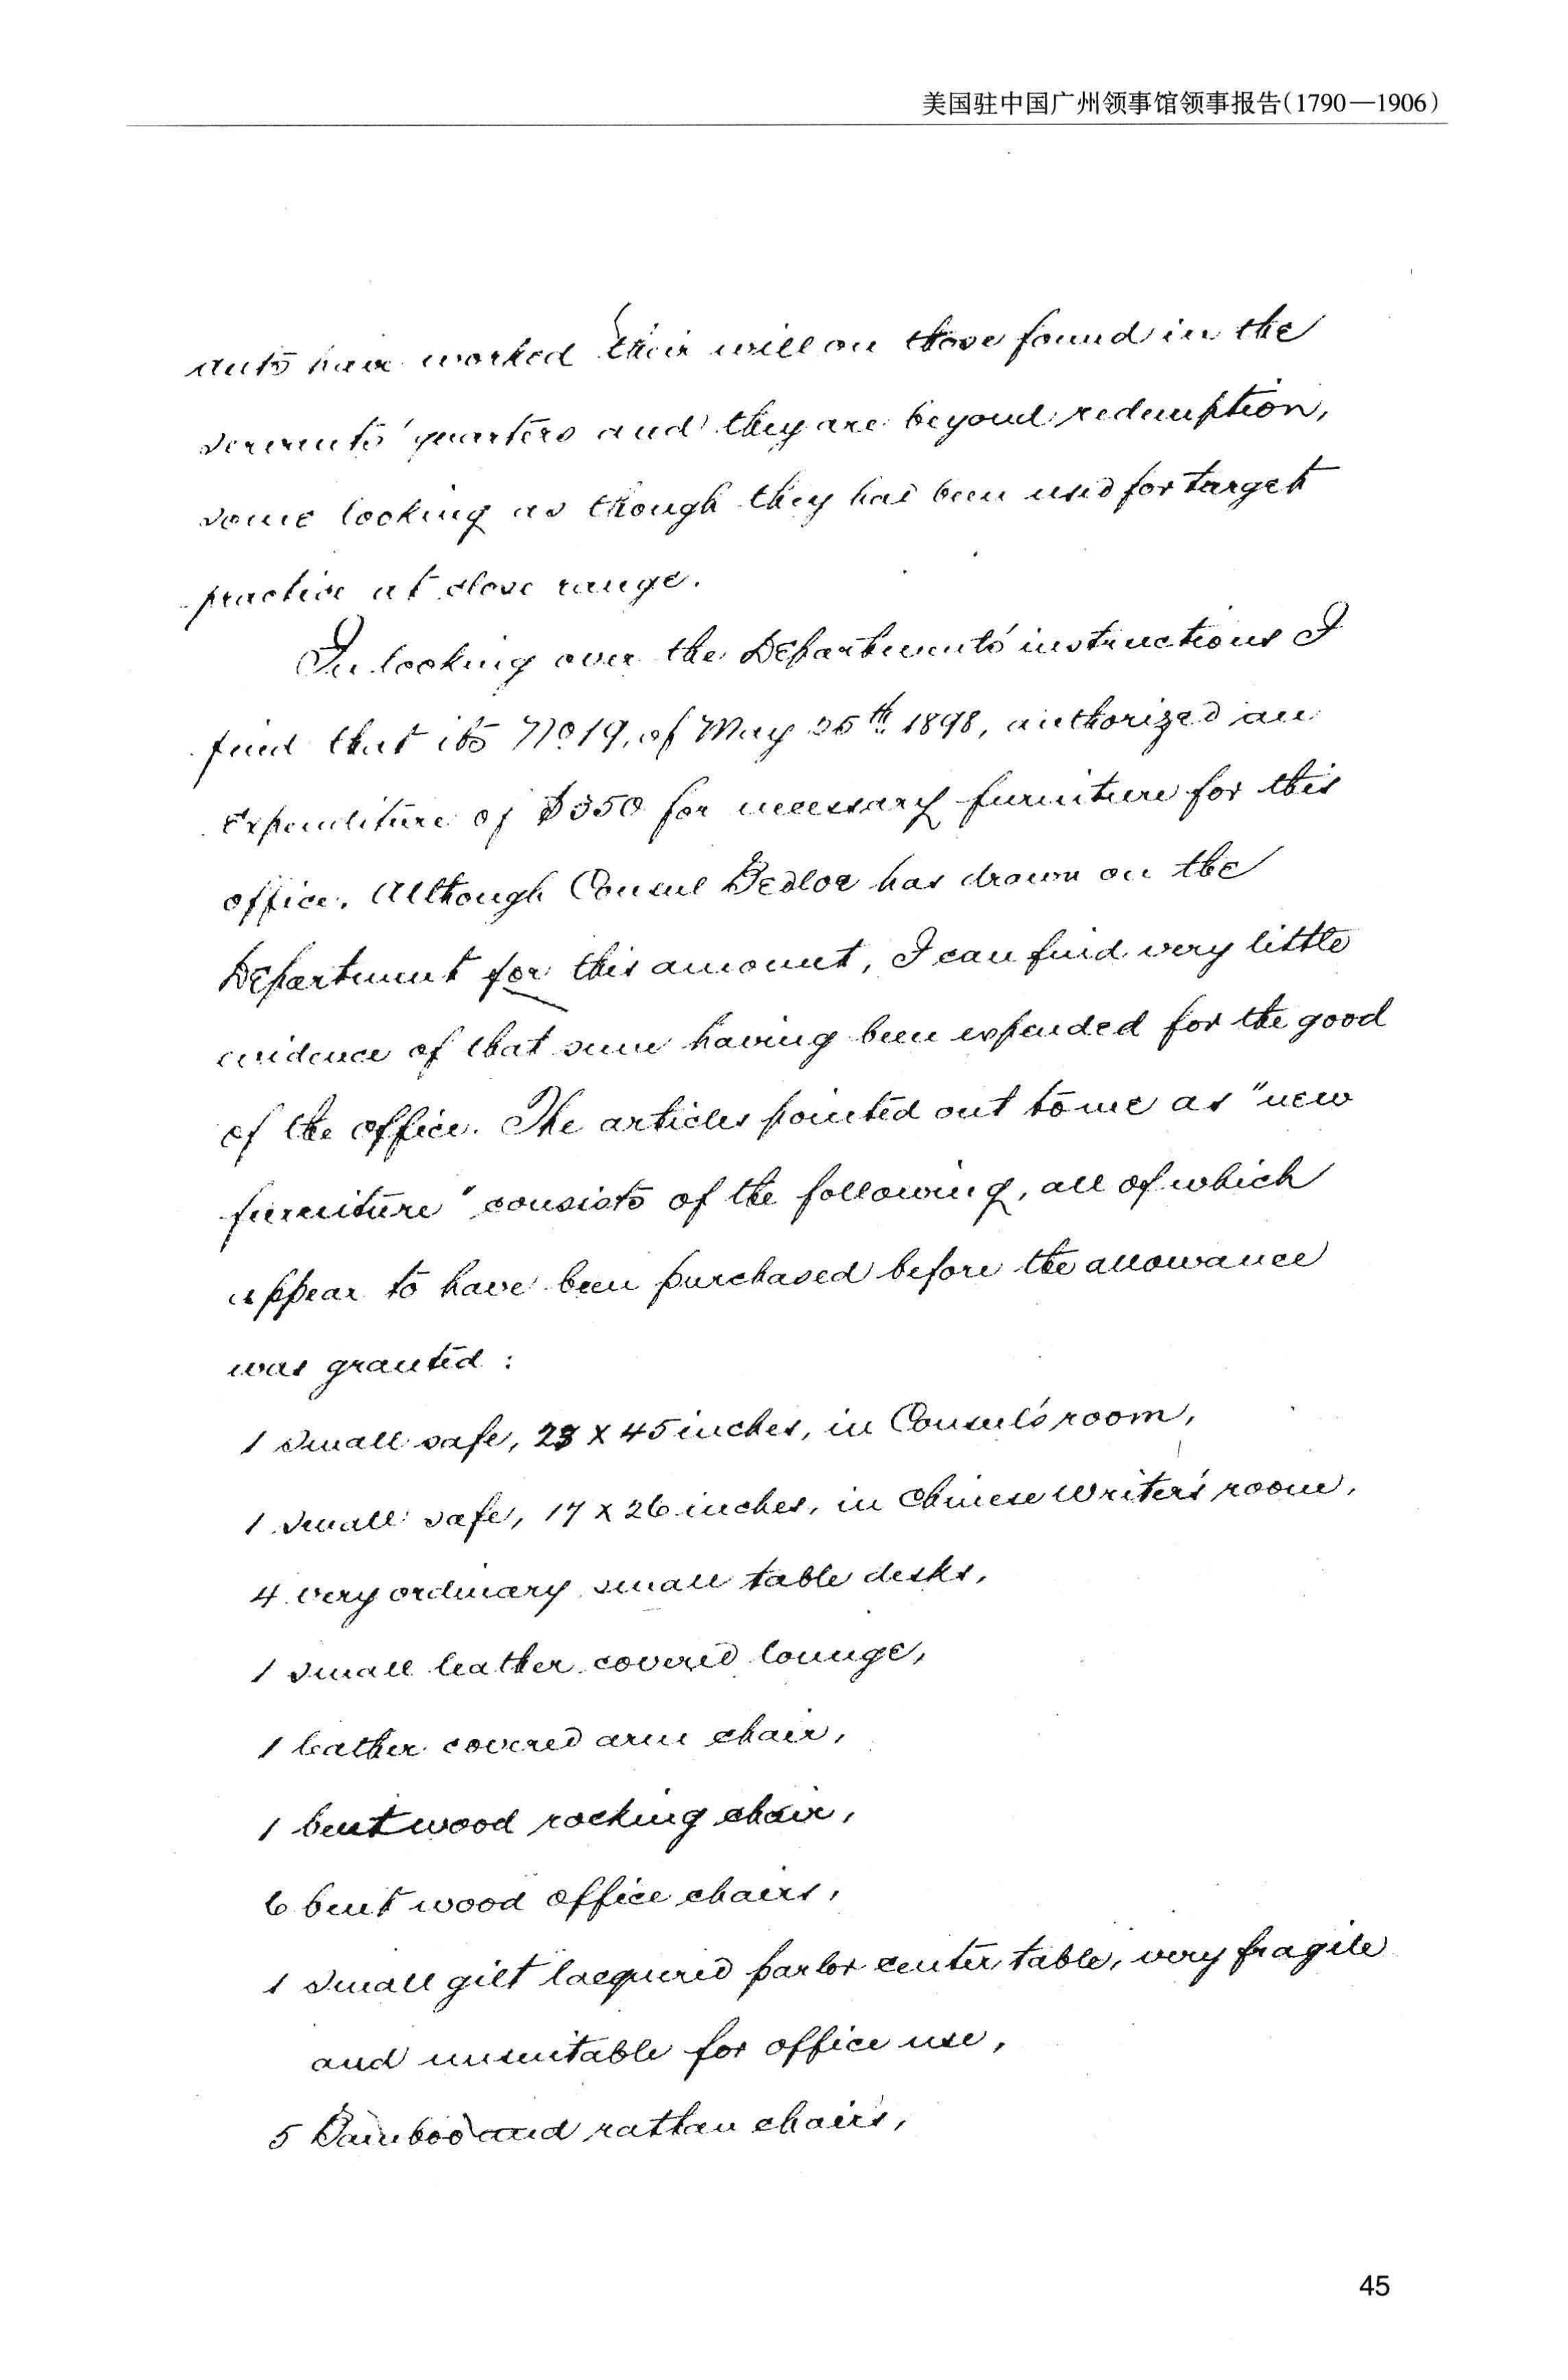 美国驻中国广州领事馆领事报告(1790—1906)
ants have worked their will on those found in the
servants' quarters and they are beyond redemption,
some looking as though they had been used for target
practice at close range.
In looking over the Department's instructions I
find that its No 19, of May 25th 1898, authorized an
expenditure of $350 for necessary furniture for this
office. Although Consul Bedloe has drawn on the
Department for this amount, I can find very little
evidence of that sum having been expended for the good
of the office. The articles pointed out to me as "new
furniture" consists of the following, all of which
appear to have been purchased before the allowance
was granted:
1 small safe, 23 x 45 inches, in Consul's room,
1 small safe, 17 x 26 inches, in Chinese Writer's room,
4 very ordinary small table desks,
1 small leather covered lounge,
1 leather covered arm chair,
1 bent wood rocking chair,
6 bent wood office chairs,
1 small gilt lacquered parlor center table, very fragile
and unsuitable for office use,
5 Bamboo and rattan chairs,
45